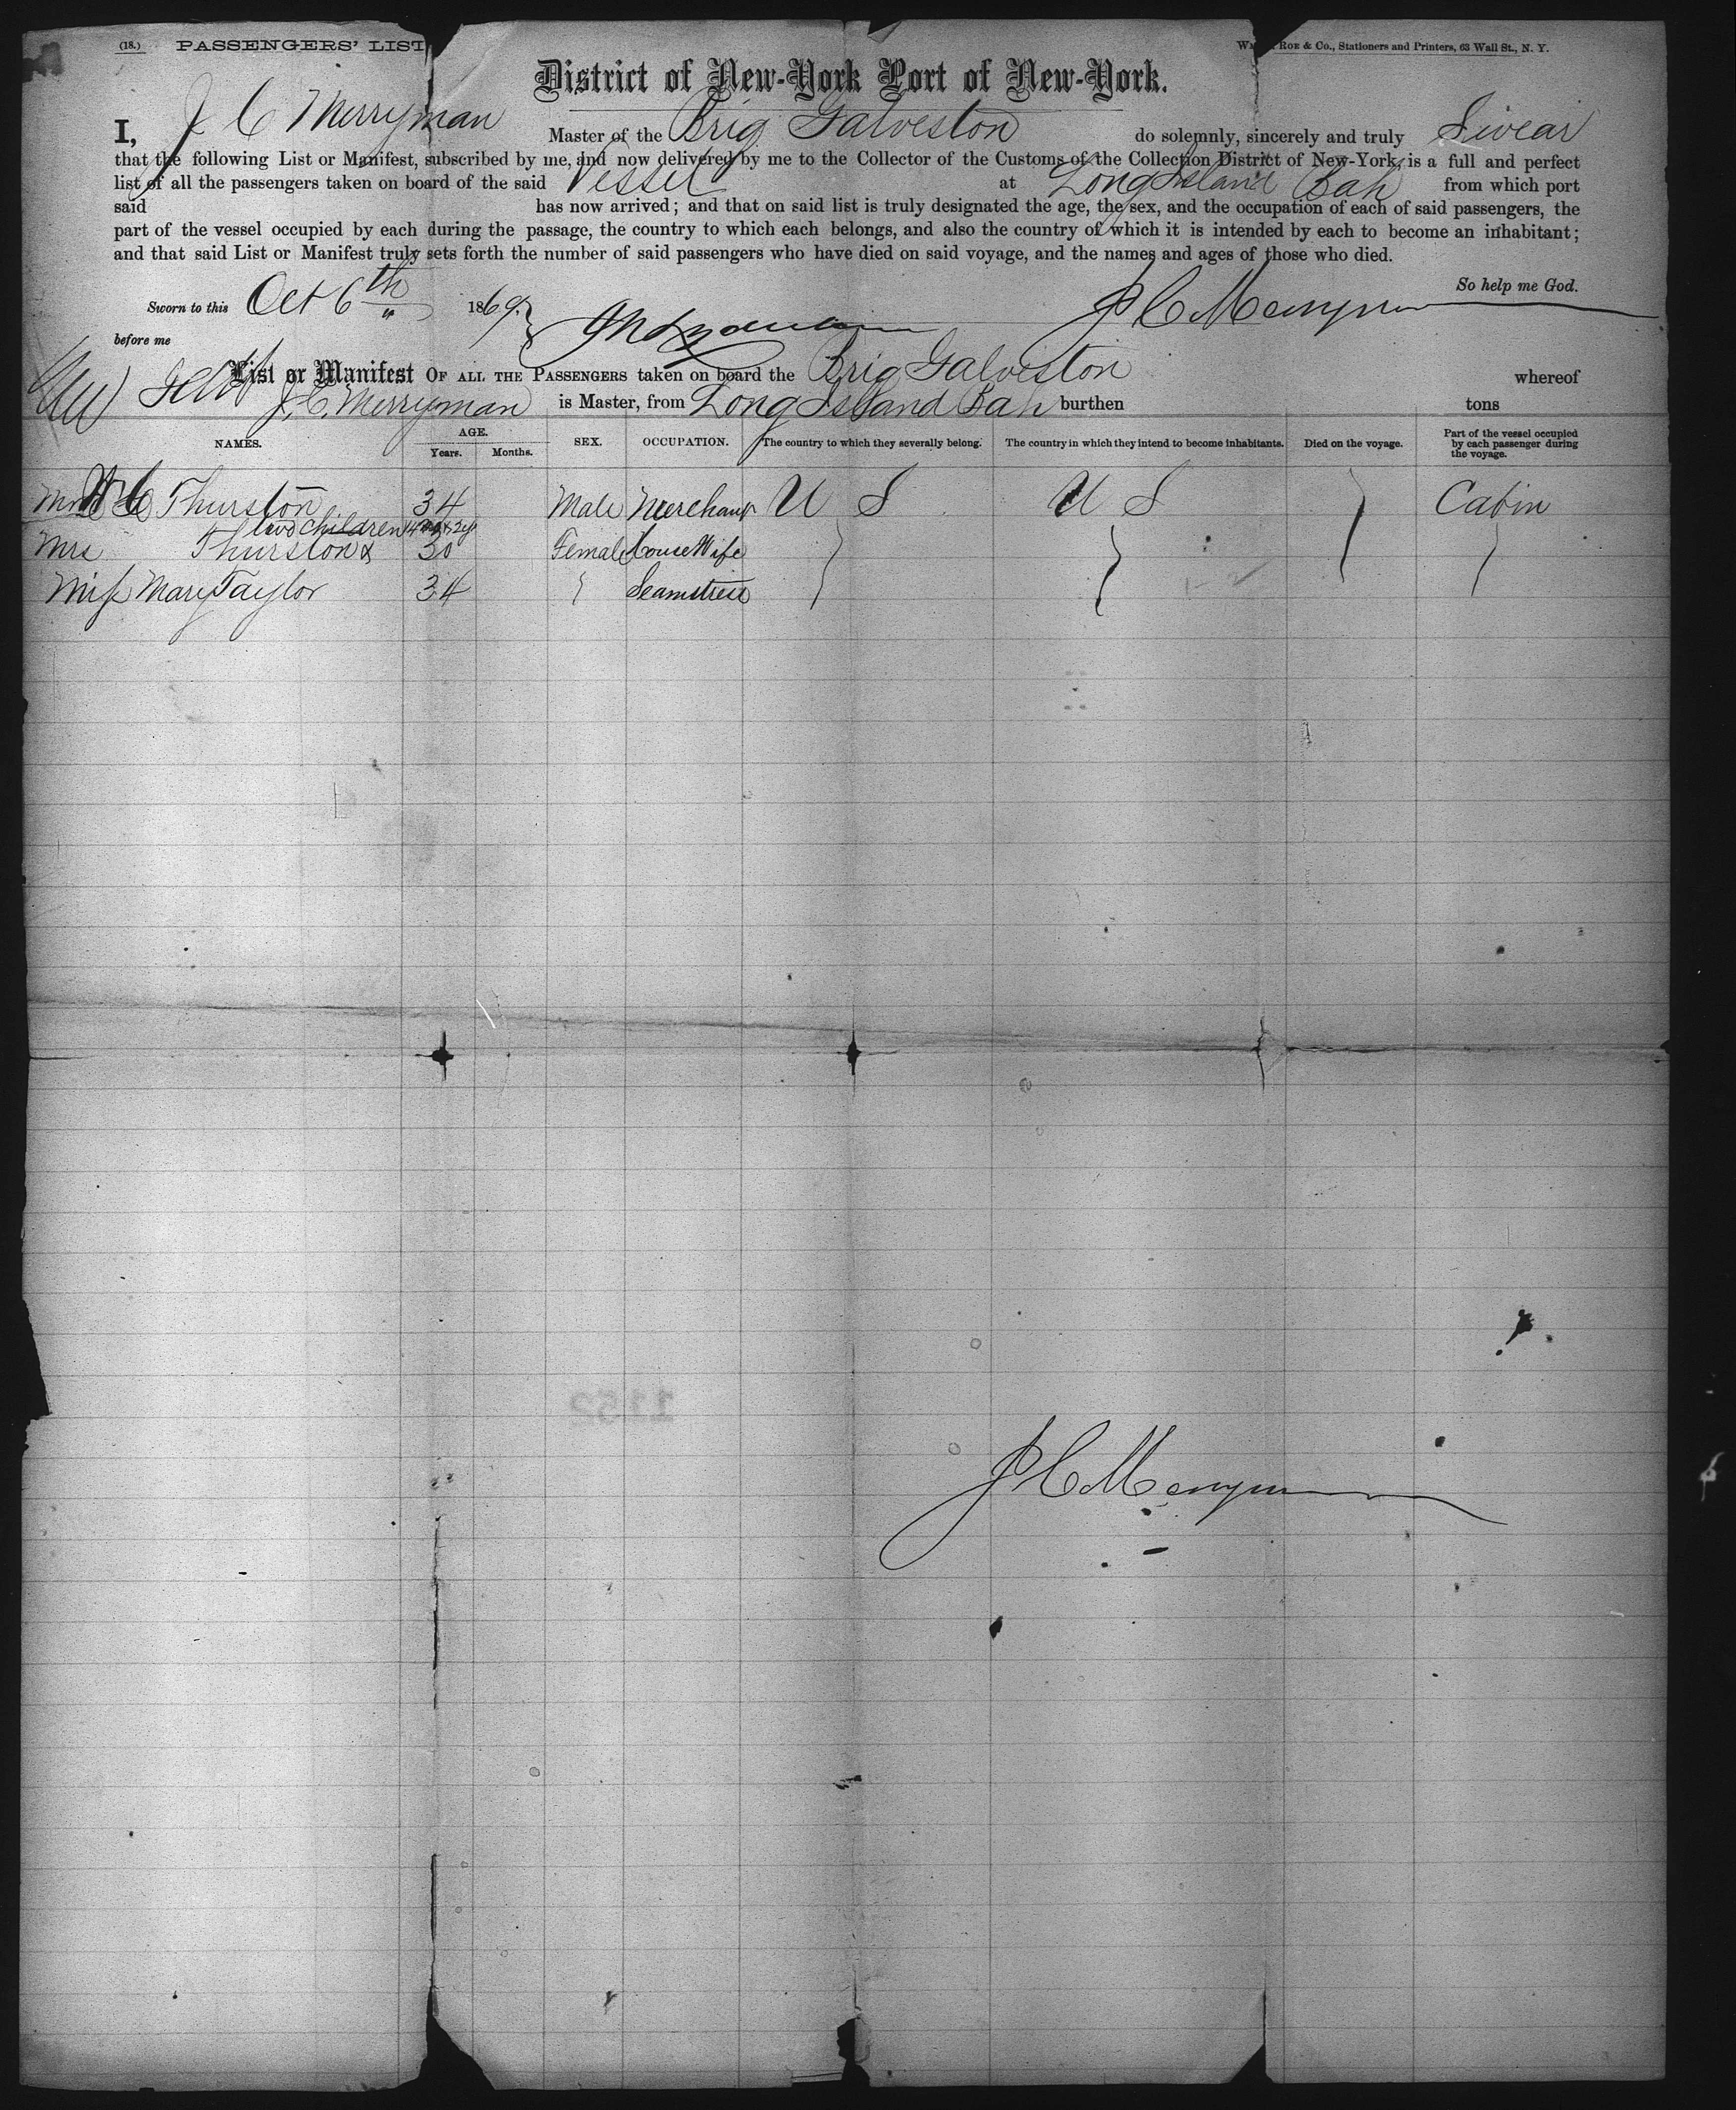 (18.) PASSENGERS' LIST
ROE & CO., Stationers and Printers, 63 Wall St., N. Y.
District of New-York Port of New-York.
I, J C Merryman Master of the Brig Galveston do solemnly, sincerely and truly Swear
that the following List or Manifest, subscribed by me, and now delivered by me to the Collector of the Customs of the Collection District of New-York, is a full and perfect
list of all the passengers taken on board of the said Vessel at Long Island Bah from which port
said has now arrived; and that on said list is truly designated the age, the sex, and the occupation of each of said passengers, the
part of the vessel occupied by each during the passage, the country to which each belongs, and also the country of which it is intended by each to become an inhabitant;
and that said List or Manifest truly sets forth the number of said passengers who have died on said voyage, and the names and ages of those who died.
So help me God.
Sworn to this Oct 6th 1869. J C Merryman
before me
List or Manifest OF ALL THE PASSENGERS taken on board the Brig Galveston whereof
J. C. Merryman is Master, from Long Island Bah burthen tons
NAMES. AGE. Years. Months. SEX. OCCUPATION. The country to which they severally belong. The country in which they intend to become inhabitants. Died on the voyage. Part of the vessel occupied by each passenger during the voyage.
Thurston 34 Male Merchant U S U S Cabin
two children
Mrs Thurston & 30 Female House Wife
Miss Mary Taylor 34 Seamstress
1152
J C Merryman